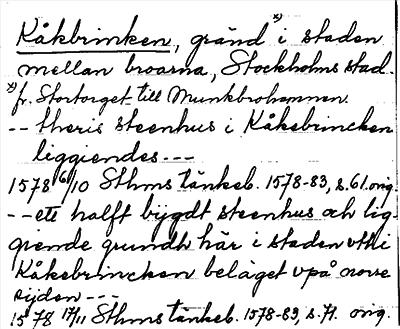 Kåkbrinken, gränd x) i staden
mellan broarna, Stockholms stad.
x) fr. Stortorget till Munkbrohamnen.
-- theris steenhus i Kåkebrincken
liggiendes ---
1578 6/10 Sthms tänkeb. 1578-83, s. 61. orig.
-- ett halft bygdt steenhus och lig-
giende grundh här i staden uthi
Kåkebrincken beläget vpå norre
sijden ---
1578 17/11 Sthms tänkeb. 1578-83, s. 71. orig.